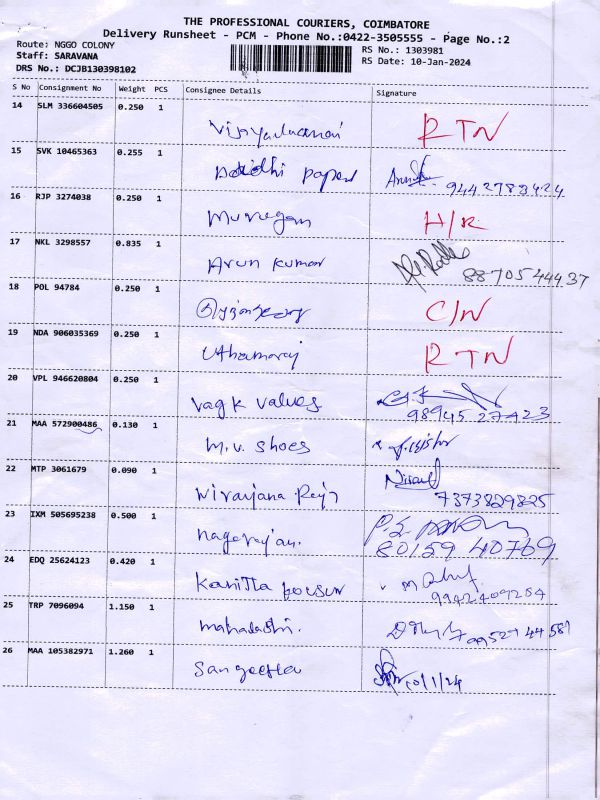 THE PROFESSIONAL COURIERS, COIMBATORE
Delivery Runsheet - PCM - Phone No.:0422-3505555 - Page No.:2
Route: NGGO COLONY
Staff: SARAVANA
DRS No.: DCJB130398102
RS No.: 1303981
RS Date: 10-Jan-2024
S No Consignment No Weight PCS Consignee Details Signature
14 SLM 336604505 0.250 1 RTN
15 SVK 10465363 0.255 1 9442783424
16 RJP 3274038 0.250 1 Murugam H/R
17 NKL 3298557 0.835 1 Arun Kumar 8870544437
18 POL 94784 0.250 1 C/N
19 NDA 906035369 0.250 1 Uthamaraj RTN
20 VPL 946620804 0.250 1 Vag K Valves 9894527423
21 MAA 572900486 0.130 1 M.V. Shoes
22 MTP 3061679 0.090 1 Niranjana 7373829825
23 IXM 505695238 0.500 1 nagarajan. 8015940769
24 EDQ 25624123 0.420 1 9942409254
25 TRP 7096094 1.150 1
26 MAA 105382971 1.260 1 Sangeetha 10/1/24